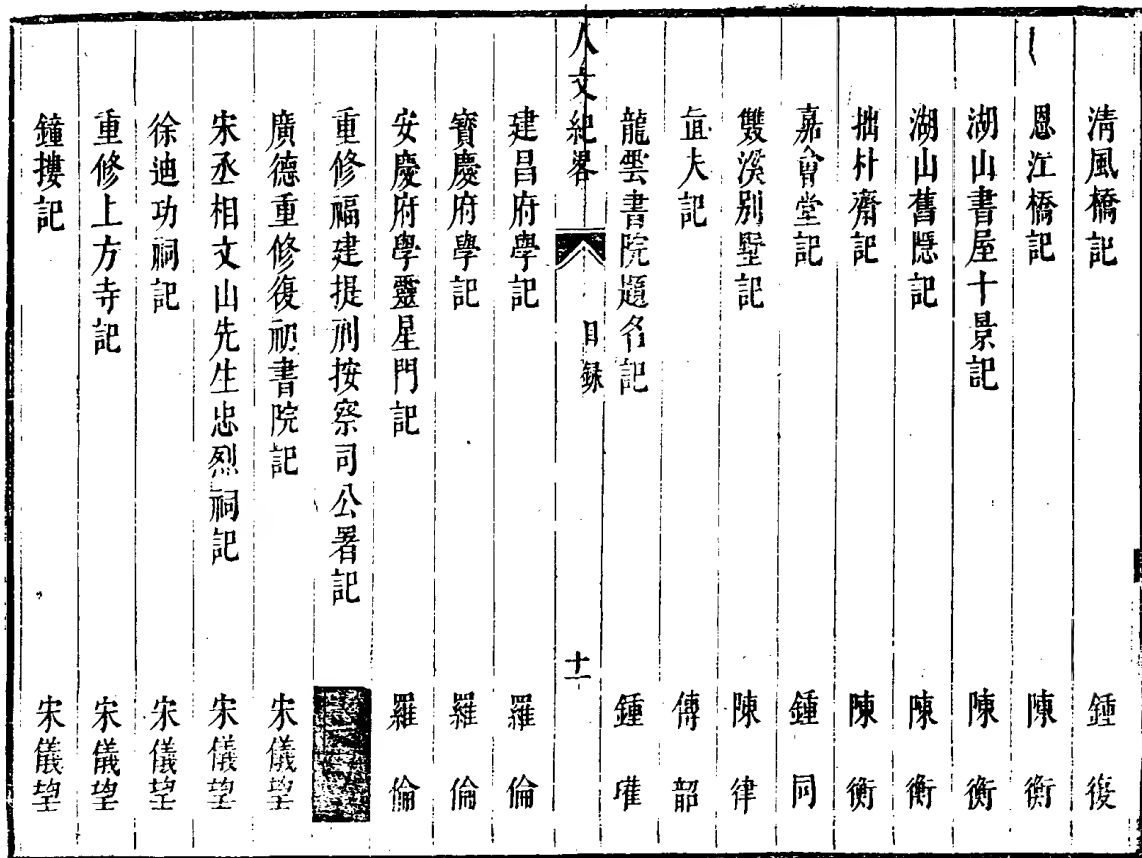 清風橋記 鍾復
恩江橋記 陳衡
湖山書屋十景記 陳衡
湖山舊隱記 陳衡
拙朴齋記 陳衡
嘉會堂記 鍾同
雙溪別墅記 陳律
直夫記 傅韶
龍雲書院題名記 鍾瓘
人文紀畧 目録 十一
建昌府學記 羅倫
寶慶府學記 羅倫
安慶府學靈星門記 羅倫
重修福建提刑按察司公署記
廣德重修復初書院記 宋儀望
宋丞相文山先生忠烈祠記 宋儀望
徐迪功祠記 宋儀望
重修上方寺記 宋儀望
鐘摟記 宋儀望